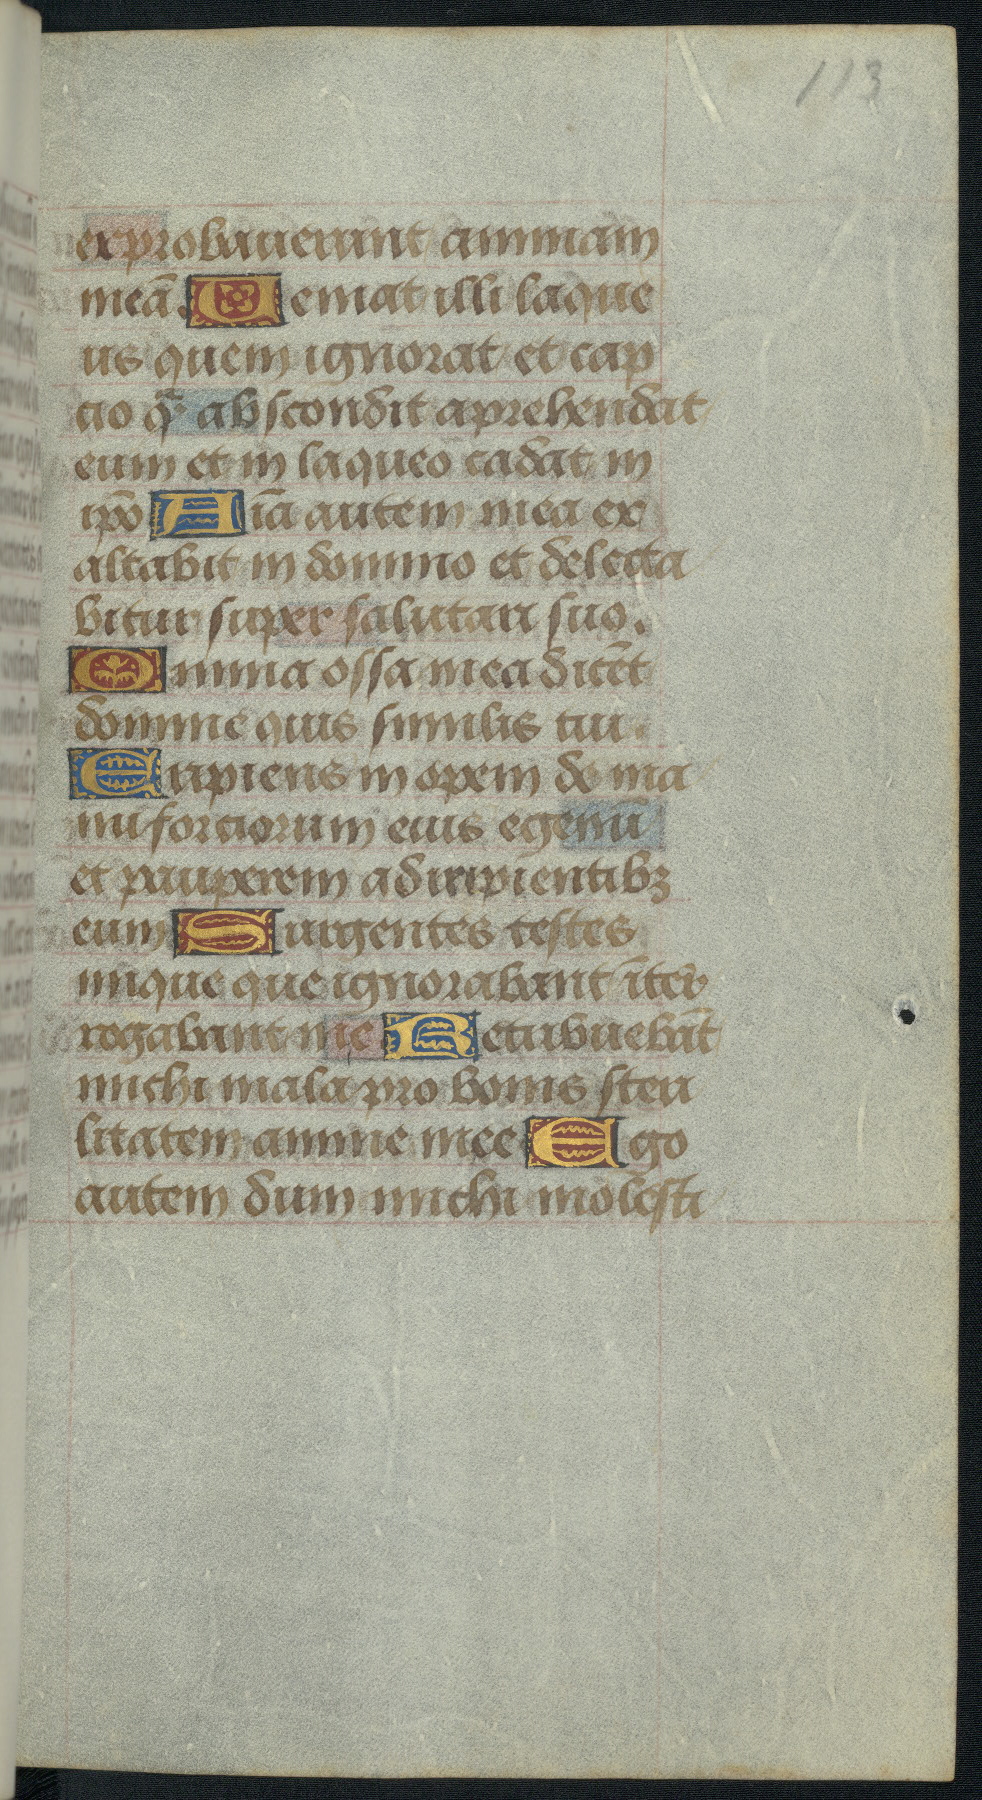 113
exprobauerunt animam
meā. Ueniat illi laque
us quem ignorat et cap
tio q̄ abscondit aprehendat
eum et in laqueo cadat in
ip̄o Aīa autem mea ex
altabit in domino et delecta
bitur super salutari suo.
Omnia ossa mea dicēt
domine quis similis tui.
Eripiens in opem de ma
nu fortiorum eius egenū
et pauperem a diripientibꝫ
eum Surgentes testes
inique que ignorabant īter
rogabant me Retribuebāt
michi mala pro bonis steri
litatem anime mee Ego
autem dum michi molesti